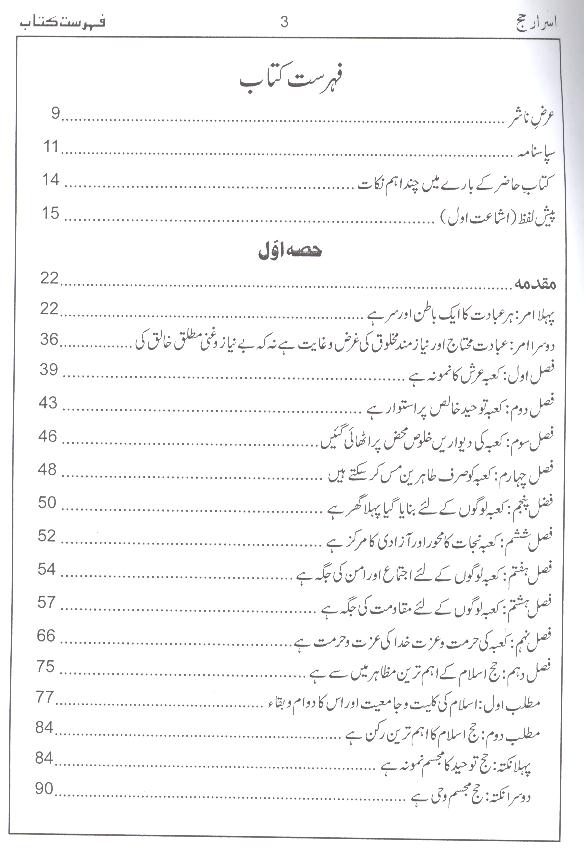 اسرار حج 3 فہرست کتاب
فہرست کتاب
عرض ناشر 9
سپاسنامہ 11
کتاب حاضر کے بارے میں چند اہم نکات 14
پیش لفظ (اشاعت اول) 15
حصہ اوّل
مقدمہ 22
پہلا امر: ہر عبادت کا ایک باطن اور سر ہے 22
دوسرا امر: عبادت محتاج اور نیاز مند مخلوق کی غرض و غایت ہے نہ کہ بے نیاز و غنی مطلق خالق کی 36
فصل اول: کعبہ عرش کا نمونہ ہے 39
فصل دوم: کعبہ توحید خالص پر استوار ہے 43
فصل سوم: کعبہ کی دیواریں خلوص محض پر اٹھائی گئیں 46
فصل چہارم: کعبہ کو صرف طاہرین مس کر سکتے ہیں 48
فصل پنجم: کعبہ لوگوں کے لئے بنایا گیا پہلا گھر ہے 50
فصل ششم: کعبہ نجات کا محور اور آزادی کا مرکز ہے 52
فصل ہفتم: کعبہ لوگوں کے لئے اجتماع اور امن کی جگہ ہے 54
فصل ہشتم: کعبہ لوگوں کے لئے مقاومت کی جگہ ہے 57
فصل نہم: کعبہ کی حرمت و عزت خدا کی عزت و حرمت ہے 66
فصل دہم: حج اسلام کے اہم ترین مظاہر میں سے ہے 75
مطلب اول: اسلام کی کلیت و جامعیت اور اس کا دوام و بقاء 77
مطلب دوم: حج اسلام کا اہم ترین رکن ہے 84
پہلا نکتہ: حج توحید کا مجسم نمونہ ہے 84
دوسرا نکتہ: حج مجسم وحی ہے 90